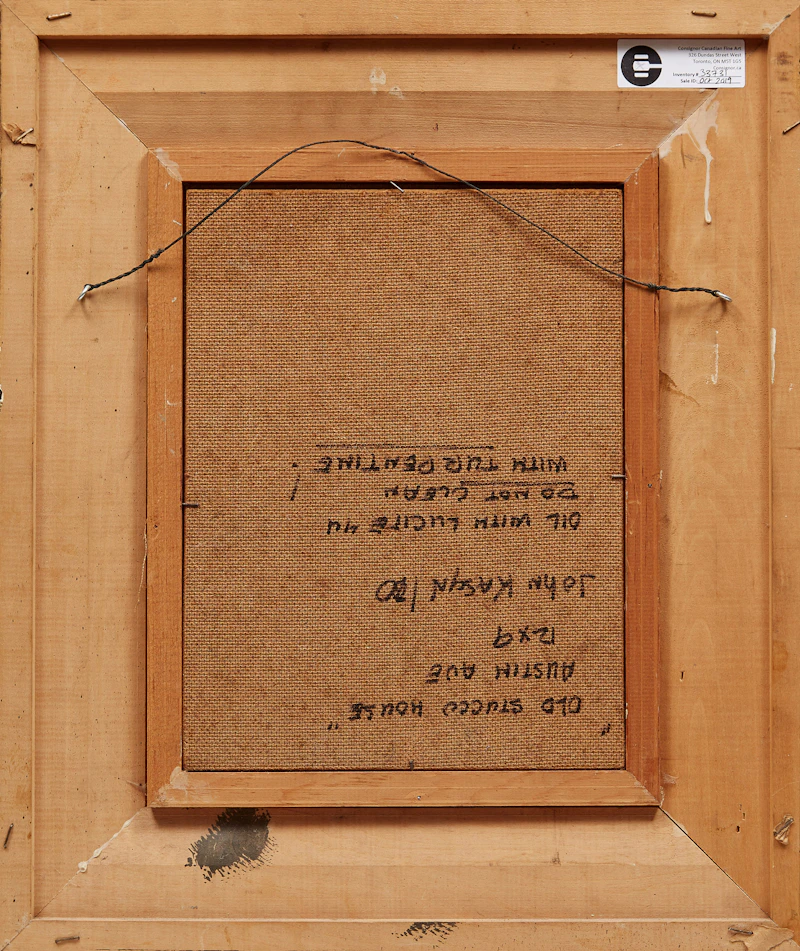 Consignor Canadian Fine Art
326 Dundas Street West
Toronto, ON M5T 1G5
Consignor.ca
Inventory # 38731
Sale ID: Oct 2019
"OLD STUCCO HOUSE"
AUSTIN AVE
12x9
John KASYN / 80
OIL WITH LUCITE 44
DO NOT CLEAN !
WITH TURPENTINE.